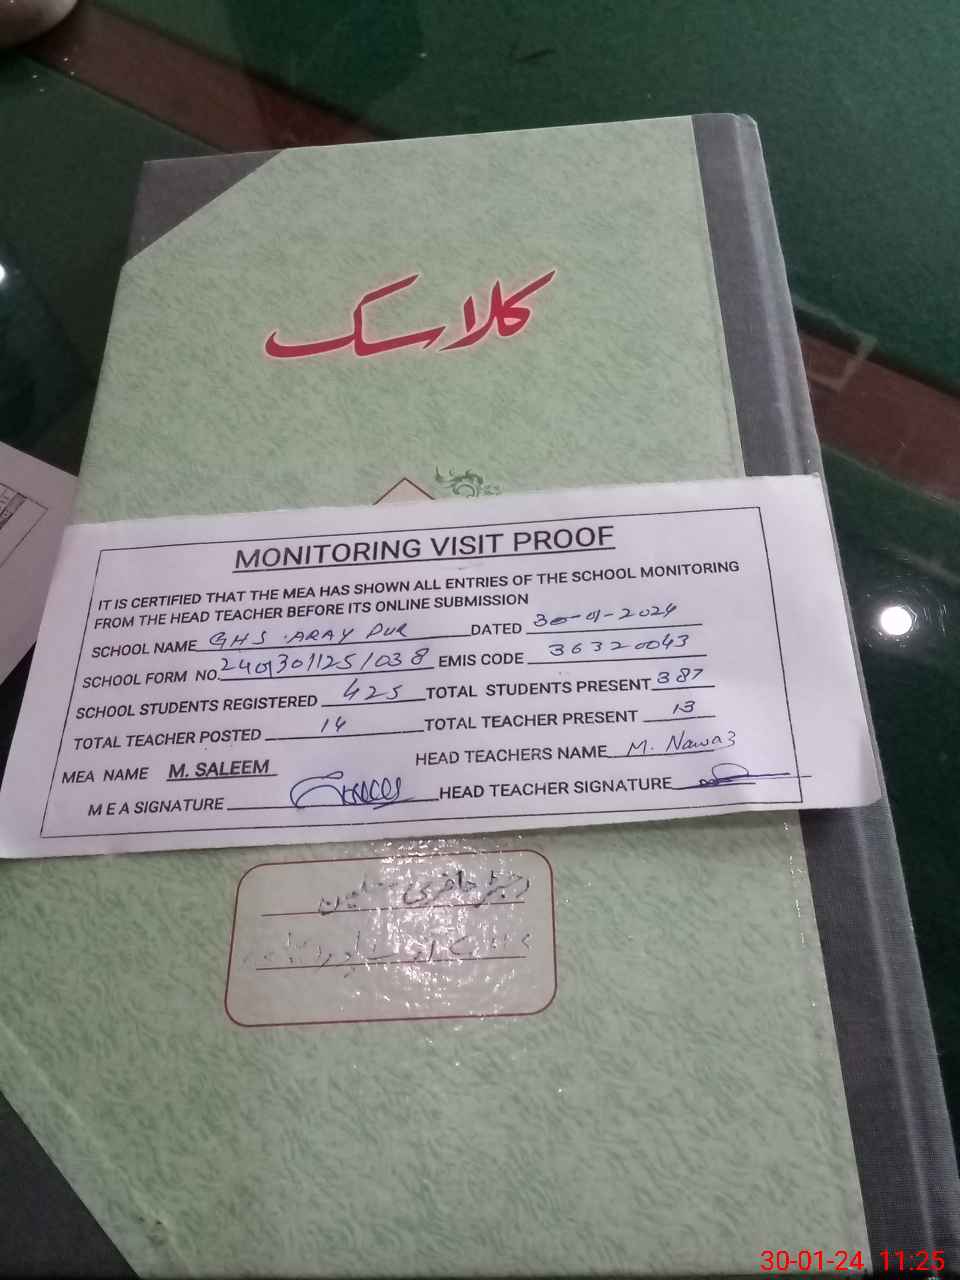 کلاسک
MONITORING VISIT PROOF
IT IS CERTIFIED THAT THE MEA HAS SHOWN ALL ENTRIES OF THE SCHOOL MONITORING
FROM THE HEAD TEACHER BEFORE ITS ONLINE SUBMISSION
SCHOOL NAME GHS ARAY PUR DATED 30-01-2024
SCHOOL FORM NO. 24013011251038 EMIS CODE 36320043
SCHOOL STUDENTS REGISTERED 425 TOTAL STUDENTS PRESENT 387
TOTAL TEACHER POSTED 14 TOTAL TEACHER PRESENT 13
MEA NAME M. SALEEM HEAD TEACHERS NAME M. Nawaz
MEA SIGNATURE HEAD TEACHER SIGNATURE
رجسٹر حاضری معلمین
30-01-24 11:25